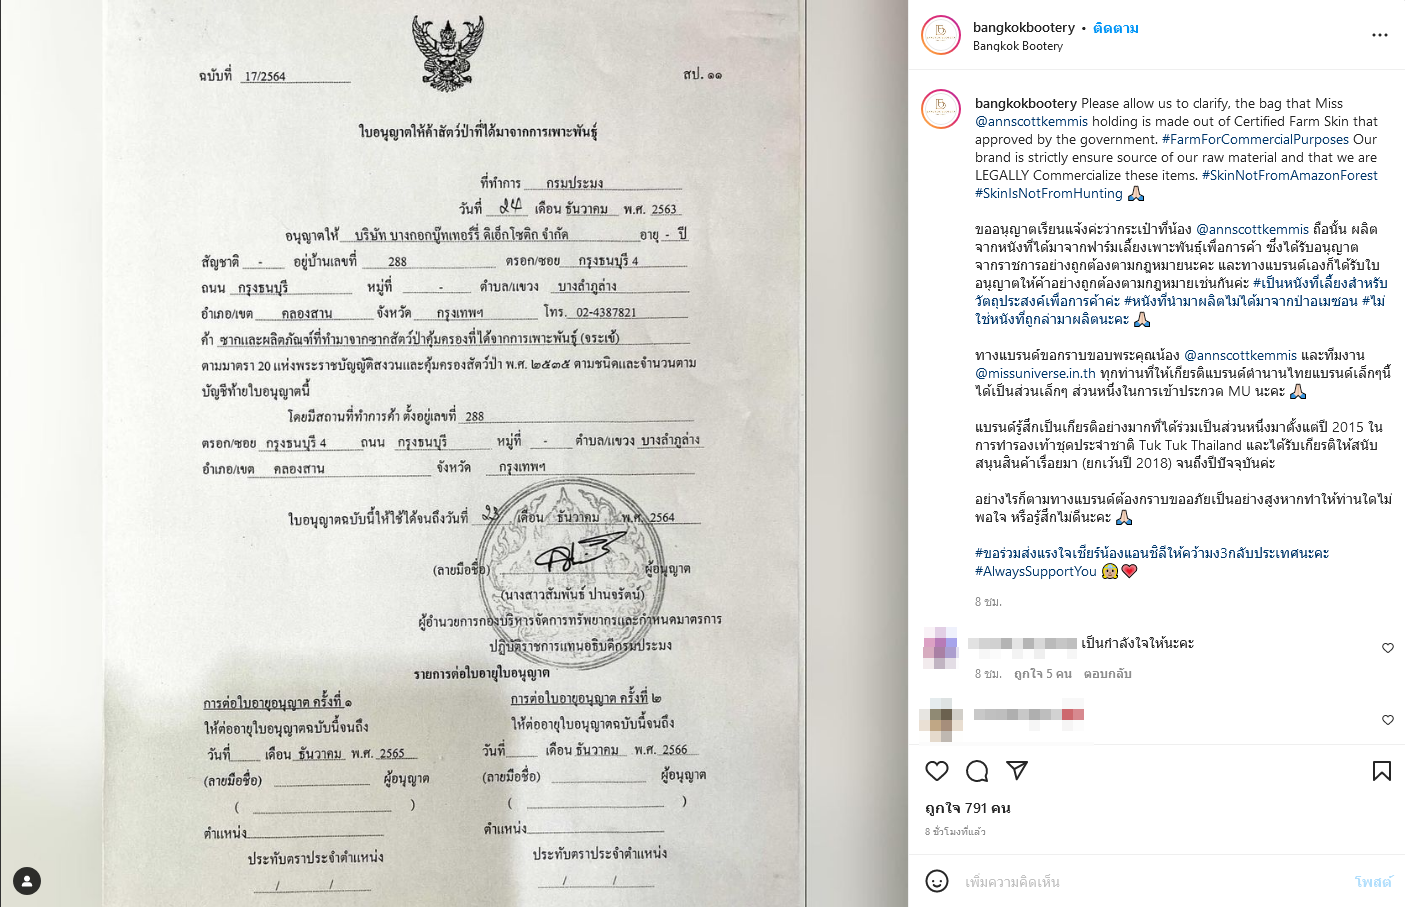 ฉบับที่ 17/2564
สป. ๑๑
ใบอนุญาตให้ค้าสัตว์ป่าที่ได้มาจากการเพาะพันธุ์
ที่ทำการ กรมประมง
วันที่ 24 เดือน ธันวาคม พ.ศ. 2563
อนุญาตให้ บริษัท บางกอกบู๊ทเทอร์รี่ ดิเอ็กโซติก จำกัด อายุ - ปี
สัญชาติ - อยู่บ้านเลขที่ 288 ตรอก/ซอย กรุงธนบุรี 4
ถนน กรุงธนบุรี หมู่ที่ - ตำบล/แขวง บางลำภูล่าง
อำเภอ/เขต คลองสาน จังหวัด กรุงเทพฯ โทร. 02-4387821
ค้า ซากและผลิตภัณฑ์ที่ทำมาจากซากสัตว์ป่าคุ้มครองที่ได้จากการเพาะพันธุ์ (จระเข้)
ตามมาตรา 20 แห่งพระราชบัญญัติสงวนและคุ้มครองสัตว์ป่า พ.ศ. ๒๕๓๕ ตามชนิดและจำนวนตาม
บัญชีท้ายใบอนุญาตนี้
โดยมีสถานที่ทำการค้า ตั้งอยู่เลขที่ 288
ตรอก/ซอย กรุงธนบุรี 4 ถนน กรุงธนบุรี หมู่ที่ - ตำบล/แขวง บางลำภูล่าง
อำเภอ/เขต คลองสาน จังหวัด กรุงเทพฯ
ใบอนุญาตฉบับนี้ให้ใช้ได้จนถึงวันที่ 23 เดือน ธันวาคม พ.ศ. 2564
(ลายมือชื่อ) ผู้อนุญาต
(นางสาวสัมพันธ์ ปานจรัตน์)
ผู้อำนวยการกองบริหารจัดการทรัพยากรและกำหนดมาตรการ
ปฏิบัติราชการแทนอธิบดีกรมประมง
รายการต่อใบอายุใบอนุญาต
การต่อใบอายุอนุญาต ครั้งที่ ๑
ให้ต่ออายุใบอนุญาตฉบับนี้จนถึง
วันที่ เดือน ธันวาคม พ.ศ. 2565
(ลายมือชื่อ) ผู้อนุญาต
( )
ตำแหน่ง
ประทับตราประจำตำแหน่ง
/ /
การต่อใบอายุอนุญาต ครั้งที่ ๒
ให้ต่ออายุใบอนุญาตฉบับนี้จนถึง
วันที่ เดือน ธันวาคม พ.ศ. 2566
(ลายมือชื่อ) ผู้อนุญาต
( )
ตำแหน่ง
ประทับตราประจำตำแหน่ง
/ /
bangkokbootery • ติดตาม
Bangkok Bootery
bangkokbootery Please allow us to clarify, the bag that Miss
@annscottkemmis holding is made out of Certified Farm Skin that
approved by the government. #FarmForCommercialPurposes Our
brand is strictly ensure source of our raw material and that we are
LEGALLY Commercialize these items. #SkinNotFromAmazonForest
#SkinIsNotFromHunting 🙏🏻
ขออนุญาตเรียนแจ้งค่ะว่ากระเป๋าที่น้อง @annscottkemmis ถือนั้น ผลิต
จากหนังที่ได้มาจากฟาร์มเลี้ยงเพาะพันธุ์เพื่อการค้า ซึ่งได้รับอนุญาต
จากราชการอย่างถูกต้องตามกฎหมายนะคะ และทางแบรนด์เองก็ได้รับใบ
อนุญาตให้ค้าอย่างถูกต้องตามกฎหมายเช่นกันค่ะ #เป็นหนังที่เลี้ยงสำหรับ
วัตถุประสงค์เพื่อการค้าค่ะ #หนังที่นำมาผลิตไม่ได้มาจากป่าอเมซอน #ไม่
ใช่หนังที่ถูกล่ามาผลิตนะคะ 🙏🏻
ทางแบรนด์ขอกราบขอบพระคุณน้อง @annscottkemmis และทีมงาน
@missuniverse.in.th ทุกท่านที่ให้เกียรติแบรนด์ตำนานไทยแบรนด์เล็กๆนี้
ได้เป็นส่วนเล็กๆ ส่วนหนึ่งในการเข้าประกวด MU นะคะ 🙏🏻
แบรนด์รู้สึกเป็นเกียรติอย่างมากที่ได้ร่วมเป็นส่วนหนึ่งมาตั้งแต่ปี 2015 ใน
การทำรองเท้าชุดประจำชาติ Tuk Tuk Thailand และได้รับเกียรติให้สนับ
สนุนสินค้าเรื่อยมา (ยกเว้นปี 2018) จนถึงปีปัจจุบันค่ะ
อย่างไรก็ตามทางแบรนด์ต้องกราบขออภัยเป็นอย่างสูงหากทำให้ท่านใดไม่
พอใจ หรือรู้สึกไม่ดีนะคะ 🙏🏻
#ขอร่วมส่งแรงใจเชียร์น้องแอนชิลีให้คว้ามง3กลับประเทศนะคะ
#AlwaysSupportYou 👸🏼💗
8 ชม.
เป็นกำลังใจให้นะคะ
8 ชม. ถูกใจ 5 คน ตอบกลับ
ถูกใจ 791 คน
8 ชั่วโมงที่แล้ว
เพิ่มความคิดเห็น
โพสต์